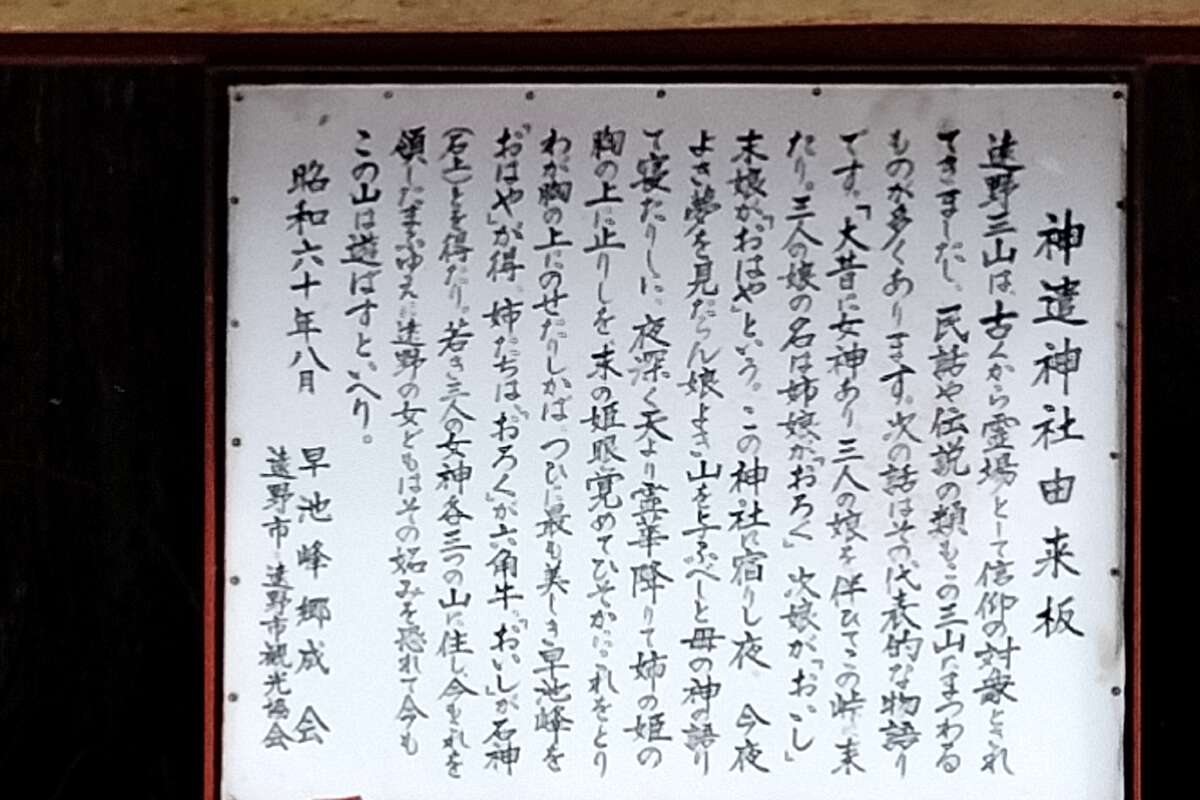 神遣神社由来板
遠野三山は、古くから霊場として信仰の対象とされ
てきました。民話や伝説の類もこの三山にまつわる
ものが多くあります。次の話はその代表的な物語り
です。「大昔に女神あり、三人の娘を伴ひてこの峠に来
たり。三人の娘の名は姉娘が「おろく」次娘が「おいし」
末娘が「おはや」という。この神社に宿りし夜、今夜
よき夢を見たらん娘よき山を与ふべしと母の神の語り
て寝たりしに、夜深く天より霊華降りて姉の姫の
胸の上に止りしを、末の姫眼覚めてひそかにこれをとり
わが胸の上にのせたりしかば、つひに最も美しき早池峰を
「おはや」が得、姉たちは、「おろく」が六角牛、「おいし」が石神
(石上)とを得たり。若き三人の女神各三つの山に住し、今もこれを
領したまふゆえに遠野の女どもはその妬みを恐れて今も
この山は遊ばすといへり。
昭和六十年八月
早池峰郷成会
遠野市・遠野市観光協会